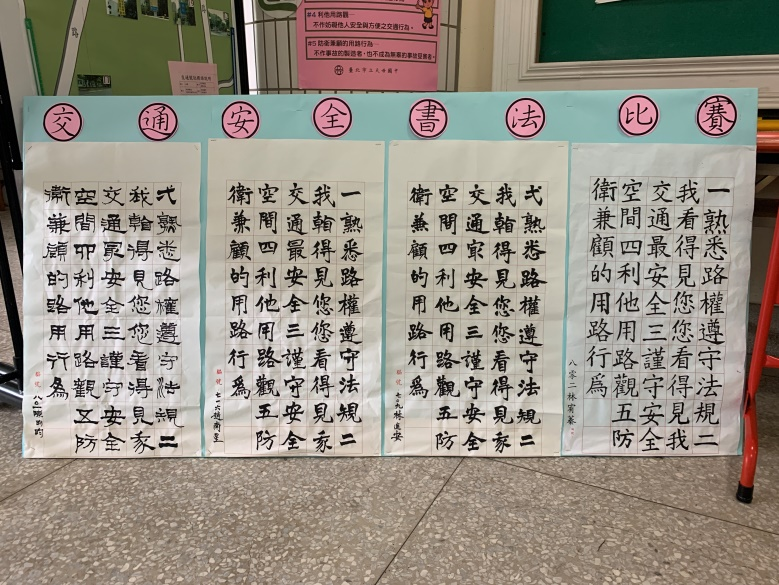 #4 利他用路觀—
不作妨礙他人安全與方便之交通行為。
#5 防衛兼顧的用路行為—
不作事故的製造者，也不成為無辜的事故受害者。
交通安全書法比賽
弌熟悉路權遵守法規二
我看得見您您看得見我
交通冣安全三謹守安全
空間四利他用路觀五防
衛兼顧的路用行為
一熟悉路權遵守法規二
我看得見您您看得見我
交通最安全三謹守安全
空間四利他用路觀五防
衛兼顧的用路行為
弌熟悉路權遵守法規二
我看得見您您看得見我
交通冣安全三謹守安全
空間四利他用路觀五防
衛兼顧的用路行為
一熟悉路權遵守法規二
我看得見您您看得見我
交通最安全三謹守安全
空間四利他用路觀五防
衛兼顧的用路行為
八零二林宥蓁